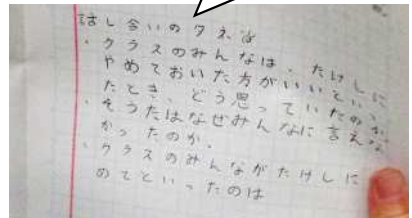 話し合いのタネは
・クラスのみんなは、たけしに
やめておいた方がいいといっ
たとき、どう思っていたのか
・そうたはなぜみんなに言えな
かったのか。
・クラスのみんながたけしに
のてといったのは